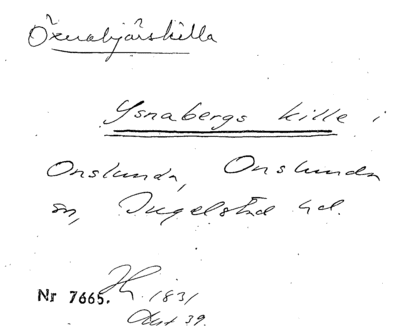 Öxnabjärskilla
Ysnabergs kille i
Onslunda, Onslunda
sn, Ingelstad hd.
Nr 7665. 1831